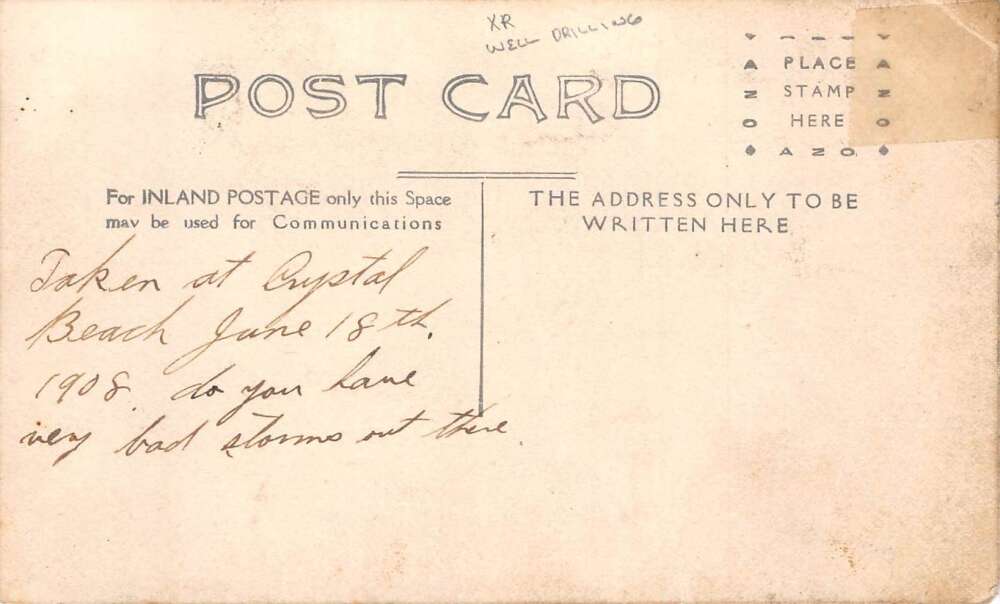 XR
WELL DRILLING
POST CARD
PLACE
STAMP
HERE
AZO
AZO
AZO
For INLAND POSTAGE only this Space
may be used for Communications
THE ADDRESS ONLY TO BE
WRITTEN HERE
Taken at Crystal
Beach June 18th.
1908. do you have
very bad storms out there.